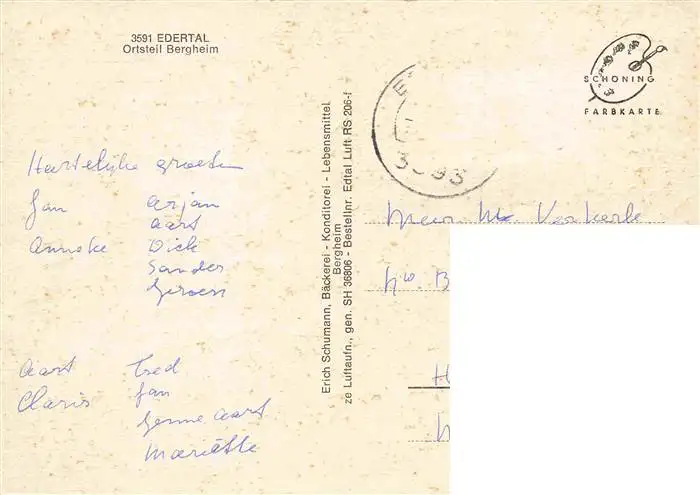 3591 EDERTAL
Ortsteil Bergheim
Hartelijke groeten
Jan Arjan
Aart
Anneke Dick
Sander
Jeroen
Aart Fred
Claris Jan
Aart
Mariëtte
Erich Schumann, Bäckerei - Konditorei - Lebensmittel
Bergheim
ze Luftaufn., gen. SH 36806 - Bestellnr. Edtal Luft RS 206-f
SCHÖNING
FARBKARTE
3593
Verkerk